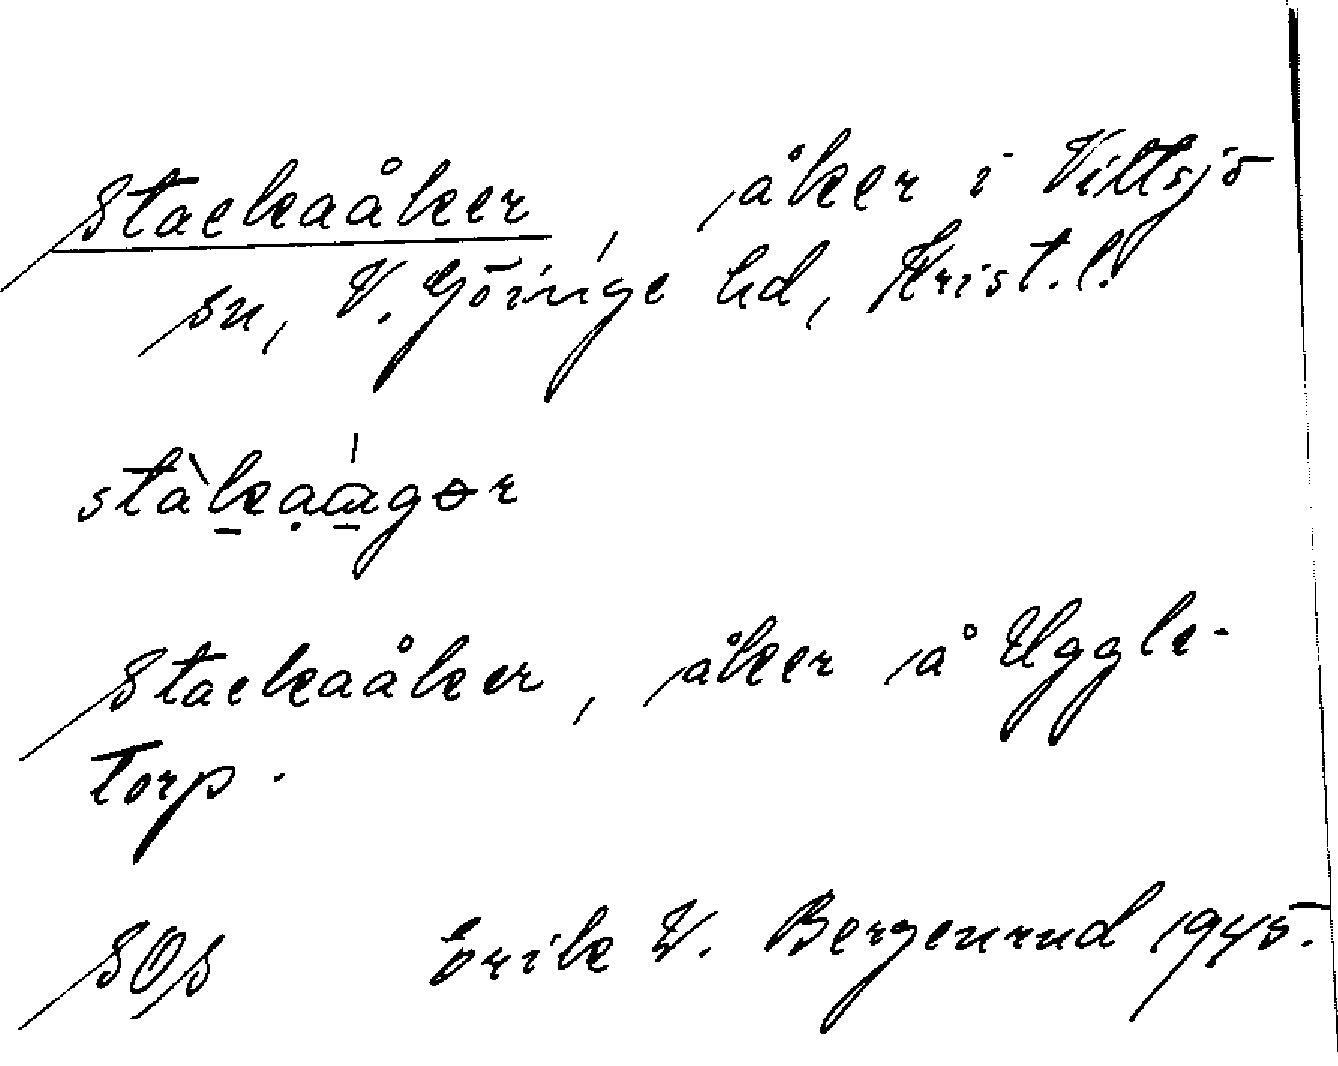 Stackaåker, åker i Vittsjö
sn, V. Göinge hd, Krist. l.
Stackaåker, åker å Uggle-
torp.
SOS Erik W. Bergenrud 1945.